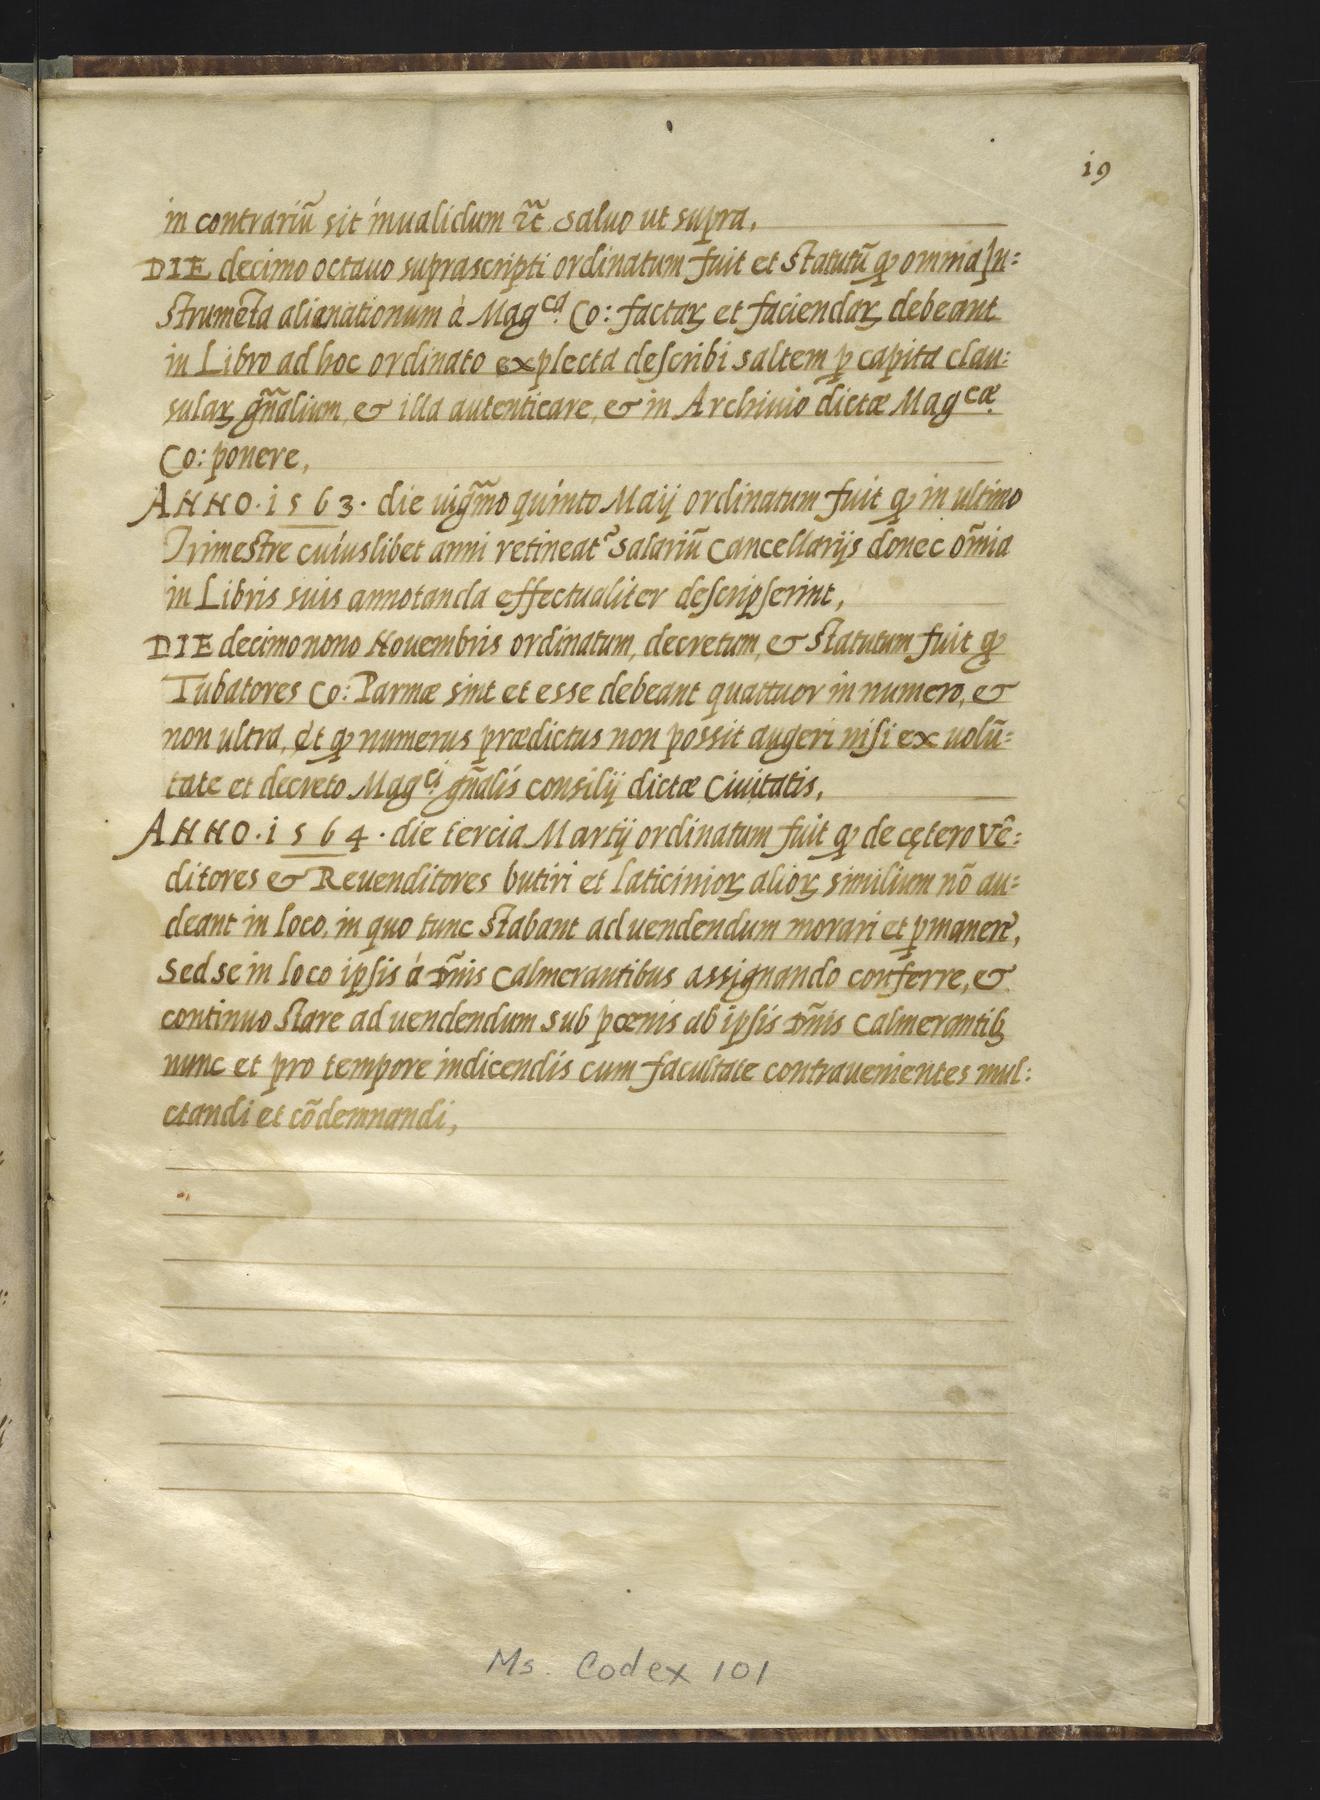 19
in contrariũ sit inualidum &c̃ saluo ut supra,
DIE decimo octauo suprascripti ordinatum fuit et statutũ ꝙ omnia In:
strumẽta alianationum à Magᶜᵃ. Co: factaꝝ et faciendaꝝ debeant
in Libro ad hoc ordinato explecta describi saltem ꝑ capita clau:
sulaꝝ gñalium, & illa autenticare, & in Archiuio dictæ Magᶜᵃᵉ.
Co: ponere,
ANNO. 1563. die uigm̃o quinto Maij ordinatum fuit ꝙ in ultimo
Trimestre cuiuslibet anni retineatʳ salariũ Cancellarijs donec om̃ia
in Libris suis annotanda effectualiter descripserint,
DIE decimo nono Nouembris ordinatum, decretum, & statutum fuit ꝙ
Tubatores Co: Parmæ sint et esse debeant quattuor in numero, &
non ultra, et ꝙ numerus prædictus non possit augeri nisi ex uolũ:
tate et decreto Magᶜⁱ. gñalis consilij dictæ Ciuitatis,
ANNO. 1564. die tercia Martij ordinatum fuit ꝙ de cętero vẽ:
ditores & Reuenditores butiri et laticinioꝝ alioꝝ similium nõ au:
deant in loco, in quo tunc stabant ad uendendum morari et ꝑmanere,
sed se in loco ipsis à Dñis Calmerantibus assignando conferre, &
continuo stare ad uendendum sub pœnis ab ipsis Dñis Calmerantibꝫ
nunc et pro tempore indicendis cum facultate contrauenientes mul:
ctandi et cõdemnandi,
Ms. Codex 101